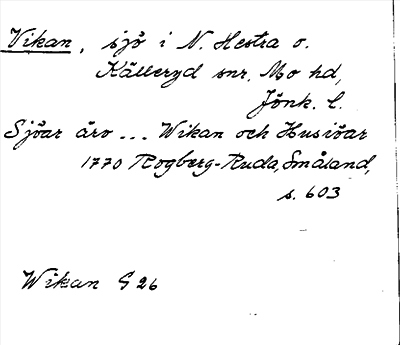 Vikan, sjö i N. Hestra o.
Källeryd snr, Mo hd,
Jönk. l.
Sjöar äro ... Wikan och Husiöar
1770 Rogberg-Ruda, Småland,
s. 603
Wikan G 26